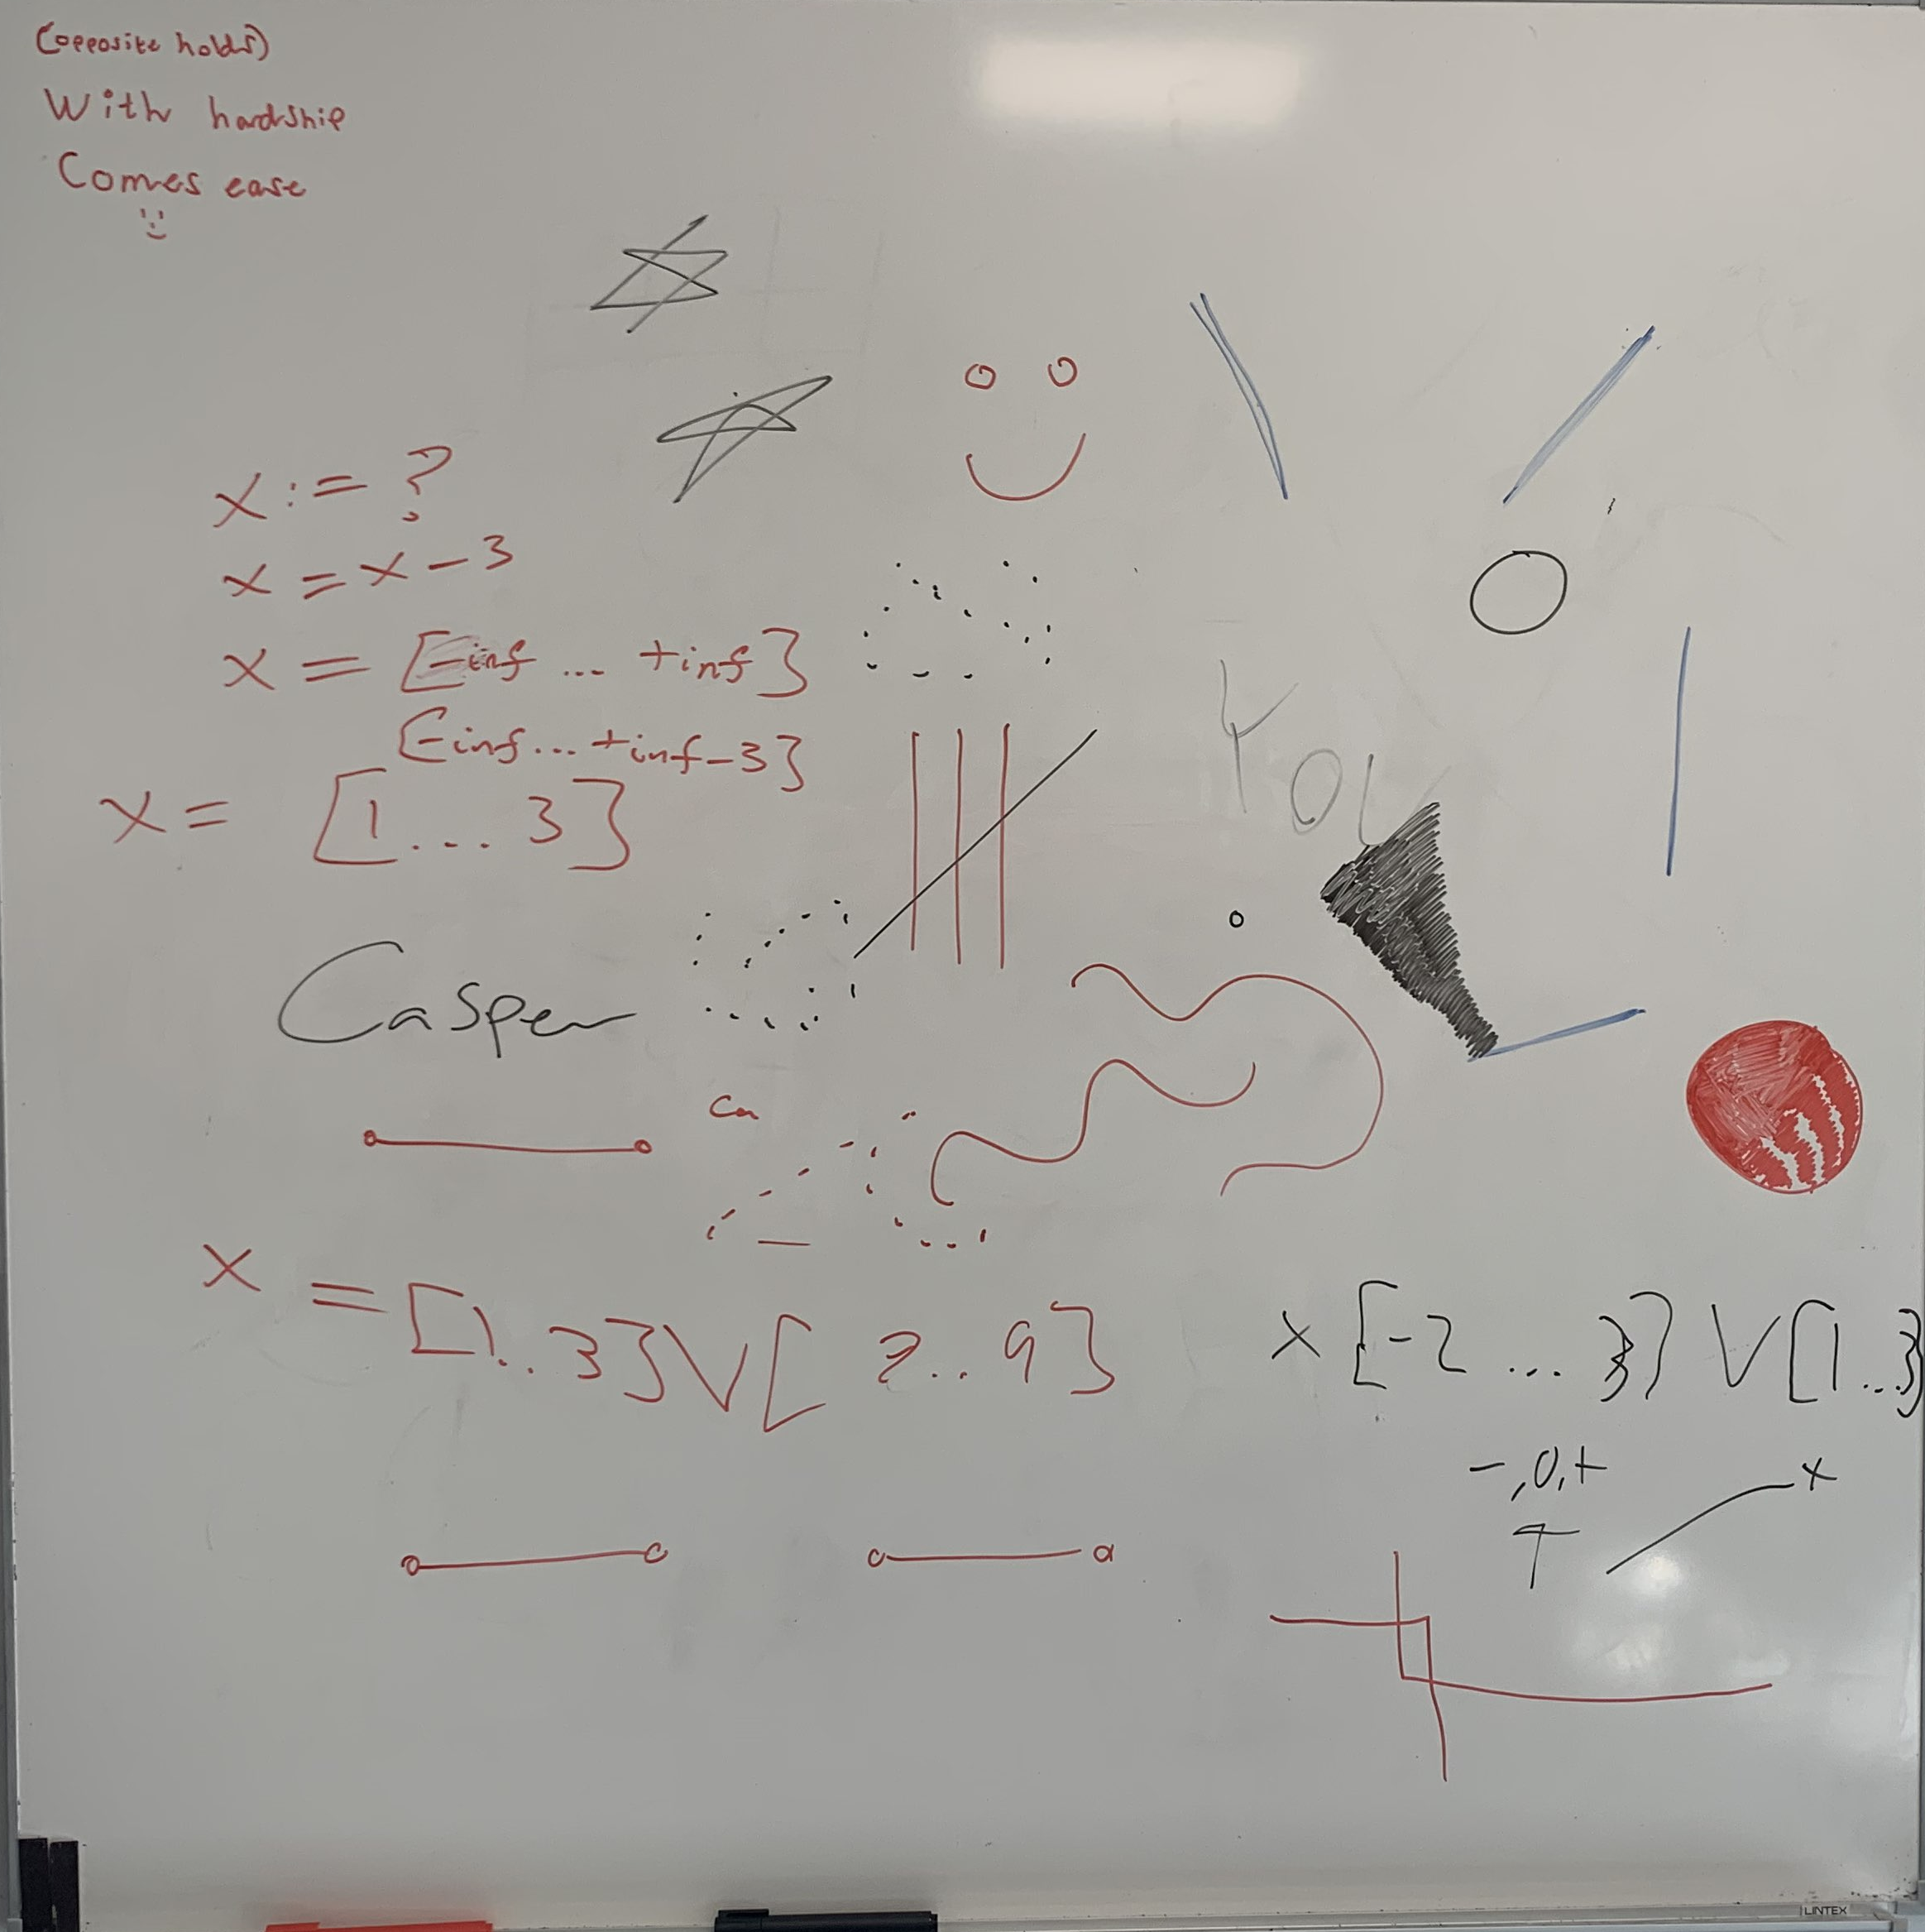 (opposite holds)
With hardship
Comes ease
x := ?
x = x - 3
x = [-inf ... +inf]
[-inf... +inf-3]
x = [1 ... 3]
YOU
Casper
Ca
x = [1..3] V [2..9]
x [-2 ... 3] V [1...3]
-,0,+
T
+
LINTEX